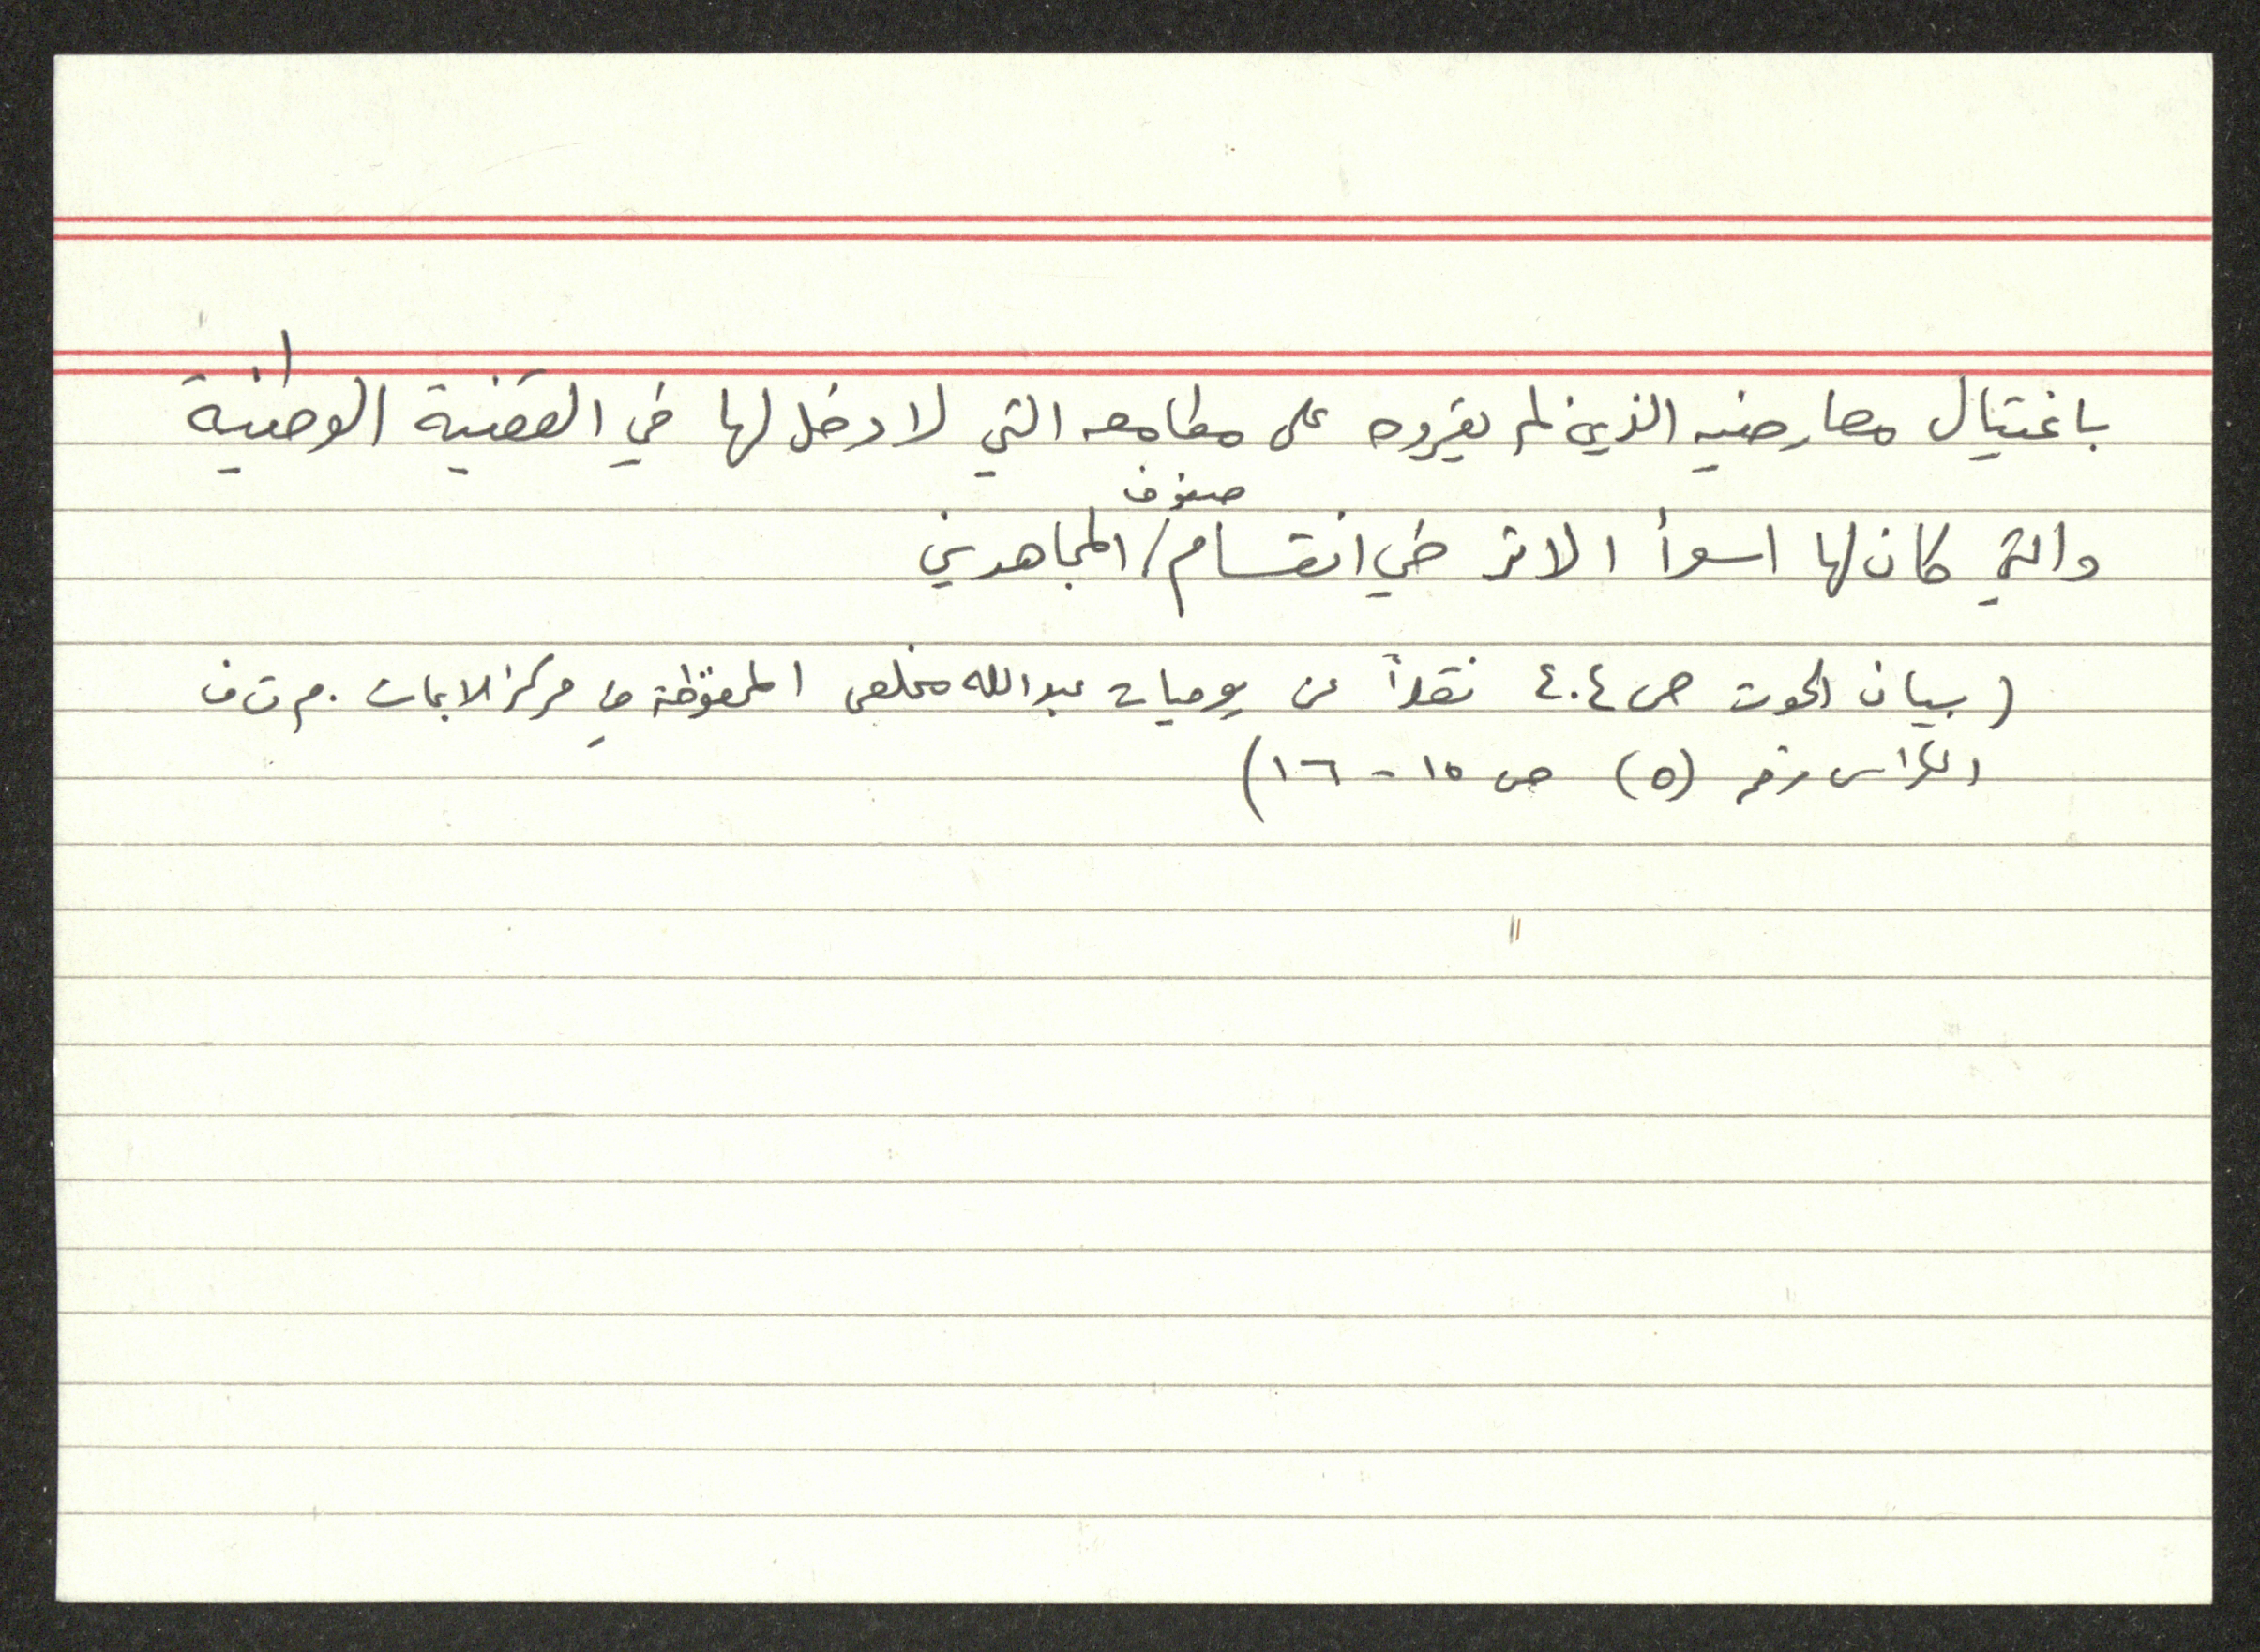 باغتيال معارضيه الذين لم يقروه على مطامعه التي لا دخل لها في القضية الوطنية
والتي كان لها اسوأ الاثر في انقسام / صفوف المجاهدين
(بيان الحوت ص ٤٠٤ نقلاً عن يوميات عبدالله مخلص المحفوظة في مركز الابحاث . م ت ف
الكراس رقم (٥) ص ١٥ - ١٦)